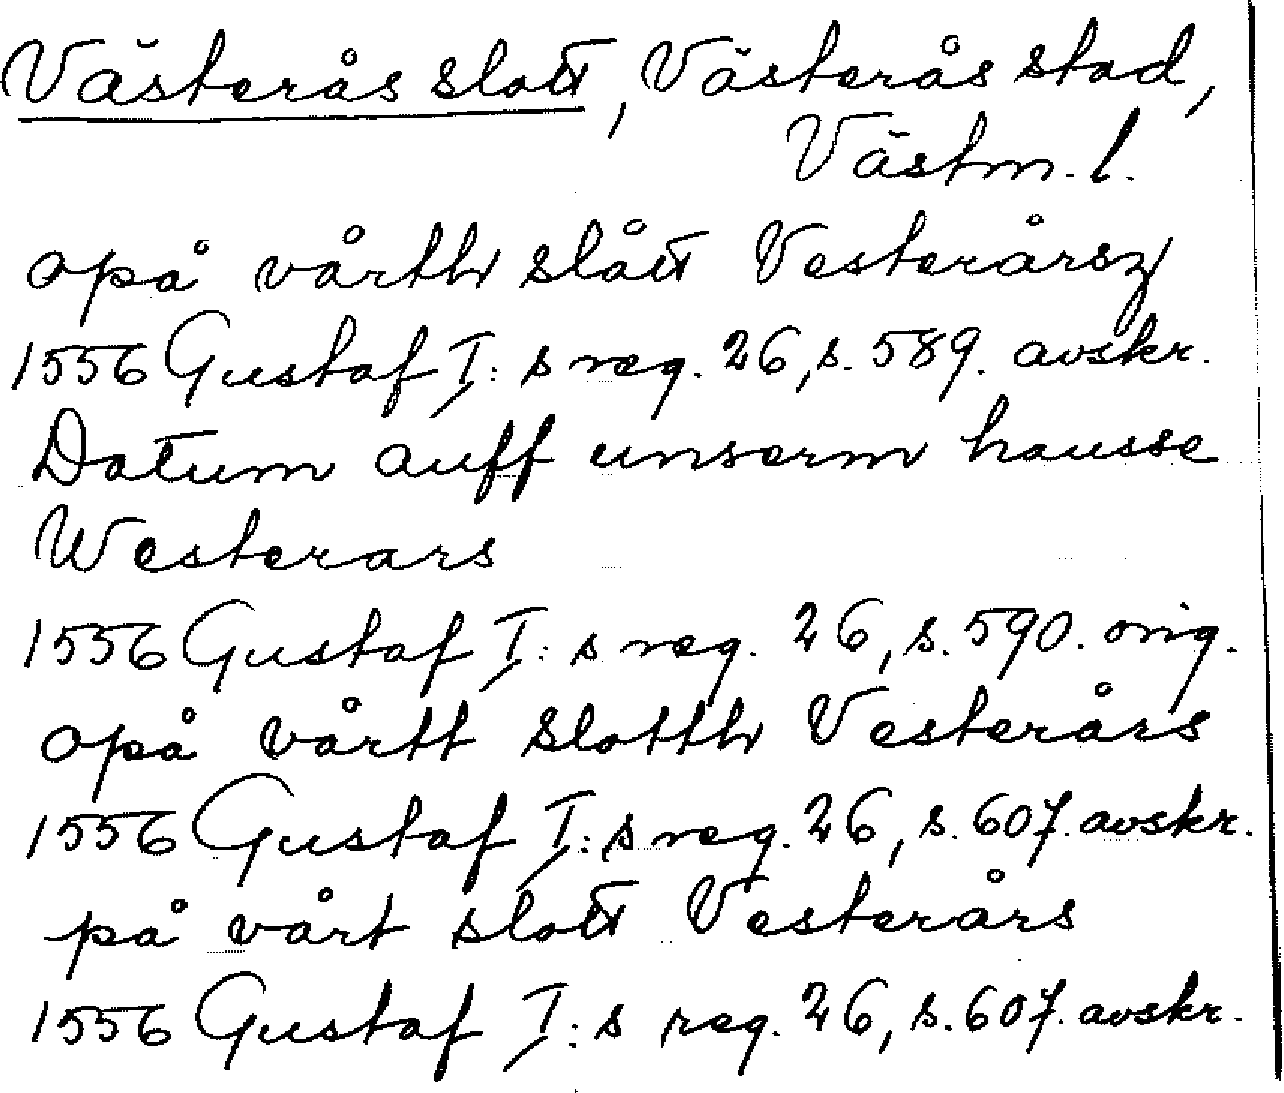 Västerås slott, Västerås stad,
Västm. l.
opå vårth slått Vesterårsz
1556 Gustaf I:s reg. 26, s. 589. avskr.
Datum auff unserm hausse
Westerars
1556 Gustaf I:s reg. 26, s. 590. orig.
opå vårtt slotth Vesterårs
1556 Gustaf I:s reg. 26, s. 607. avskr.
på vårt slott Vesterårs
1556 Gustaf I:s reg. 26, s. 607. avskr.